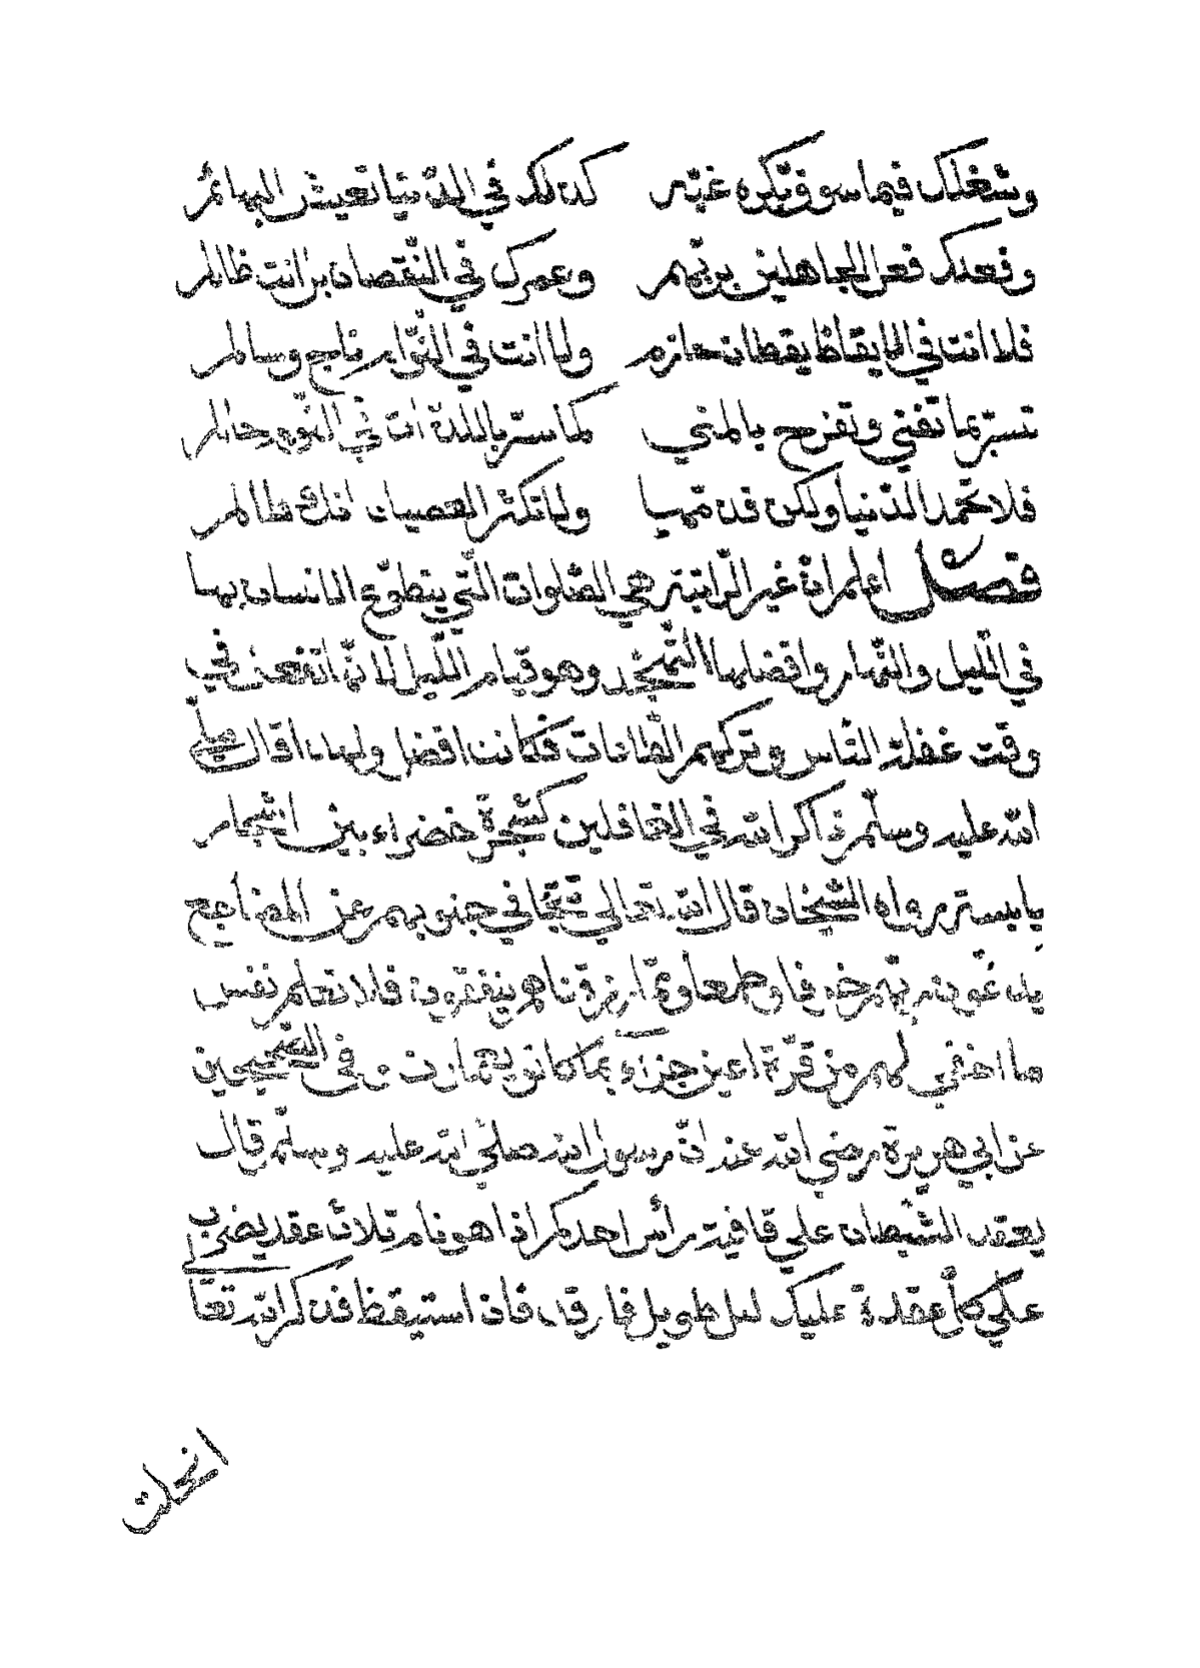 وشغلك فيما سوف تكره غبّه كذلك في الدّنيا تعيش البهائم
وفعلك فعل الجاهلين بربّهم وعمرك في النّقصان بل انت ظالم
فلا انت في الايقاظ يقظان حازم ولا انت في النّوّام ناج وسالم
تسرّ بما تفني وتفرح بالمني كما سرّ باللذة ات في النّوم حالم
فلا تحمد الدّنيا ولكن فذمّها ولا تكثر العصيان انك ظالم
فصل اعلم ان غير الرّاتبة هي الصّلوات الّتي يتطوّع الانسان بها
في اللّيل والنّهار وافضلها التّهجّد وهو قيام اللّيل لانّها تفعل في
وقت غفلة النّاس وتركهم الطّاعات فكانت افضل ولهذا قال صلّي
الله عليه وسلّم ذاكر الله في الغافلين كشجرة خضراء بين اشجار
يابسة رواه الشّيخان قال الله تعالي تتجافي جنوبهم عن المضاجع
يدعون ربّهم خوفا وطمعا وممّا رزقناهم ينفقون فلا تعلم نفس
ما اخفي لهم من قرّة اعين جزاء بما كانوا يعملون وفى الصّحيحين
عن ابي هريرة رضي الله عنه انّ رسول الله صلّي الله عليه وسلّم قال
يعقد الشّيطان علي قافية رأس احدكم اذا هو نام ثلاث عقد يضرب
علي كلّ عقدة عليك ليل طويل فارقد فان استيقظ فذكر الله تعالي
انحلت